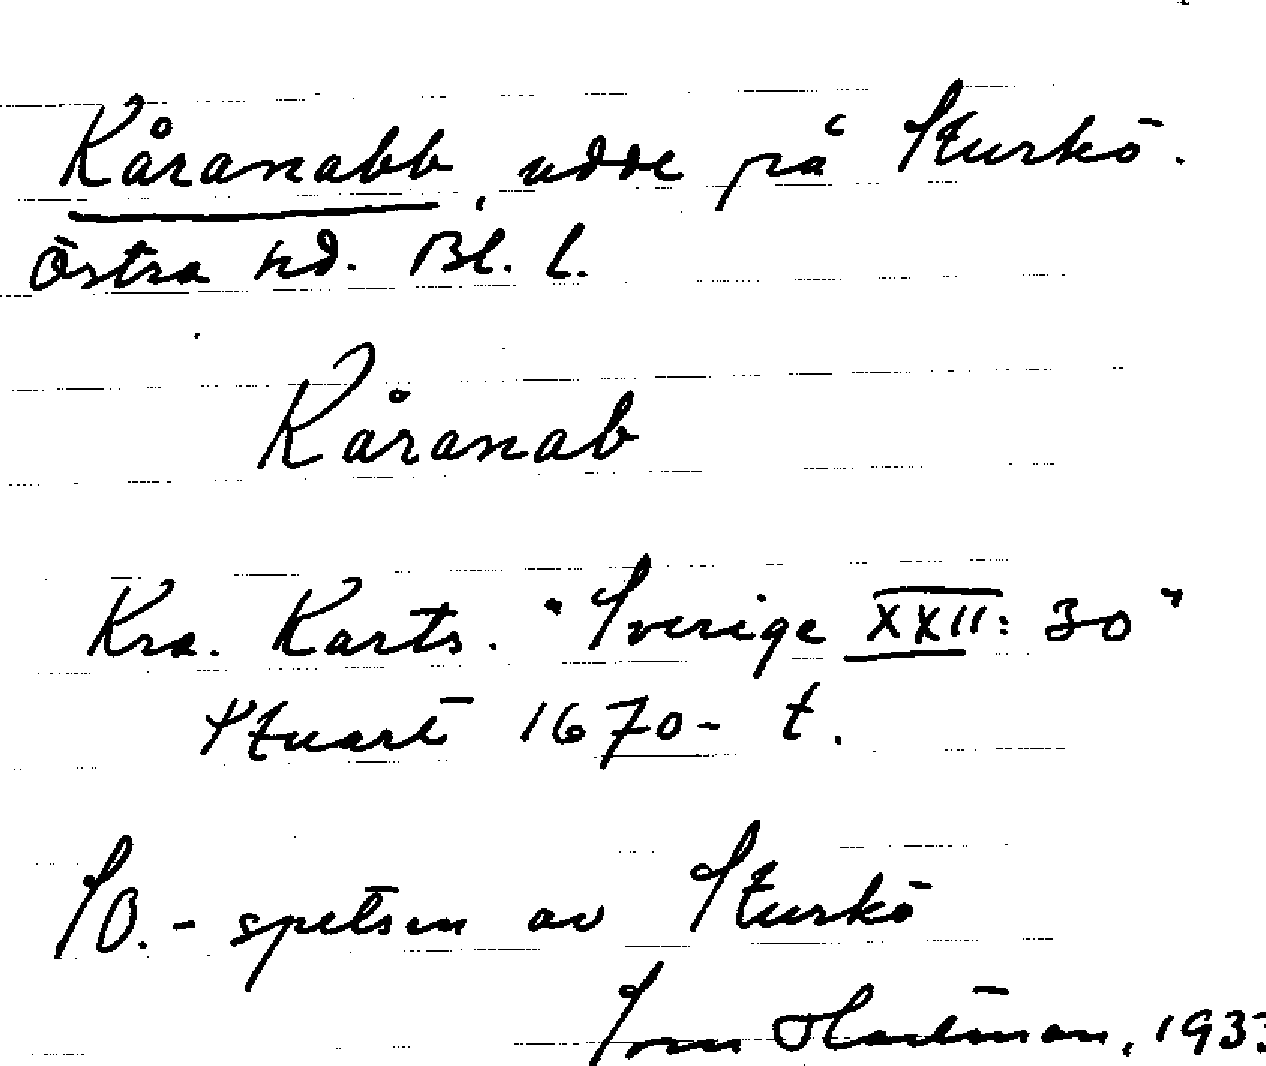 Kåranabb, udde på Sturkö.
Östra hd. Bl. l.
Kåranab
Kra. Karts. "Sverige XXII: 30"
Stuart 1670- t.
SO.- spetsen av Sturkö
Hartman, 193